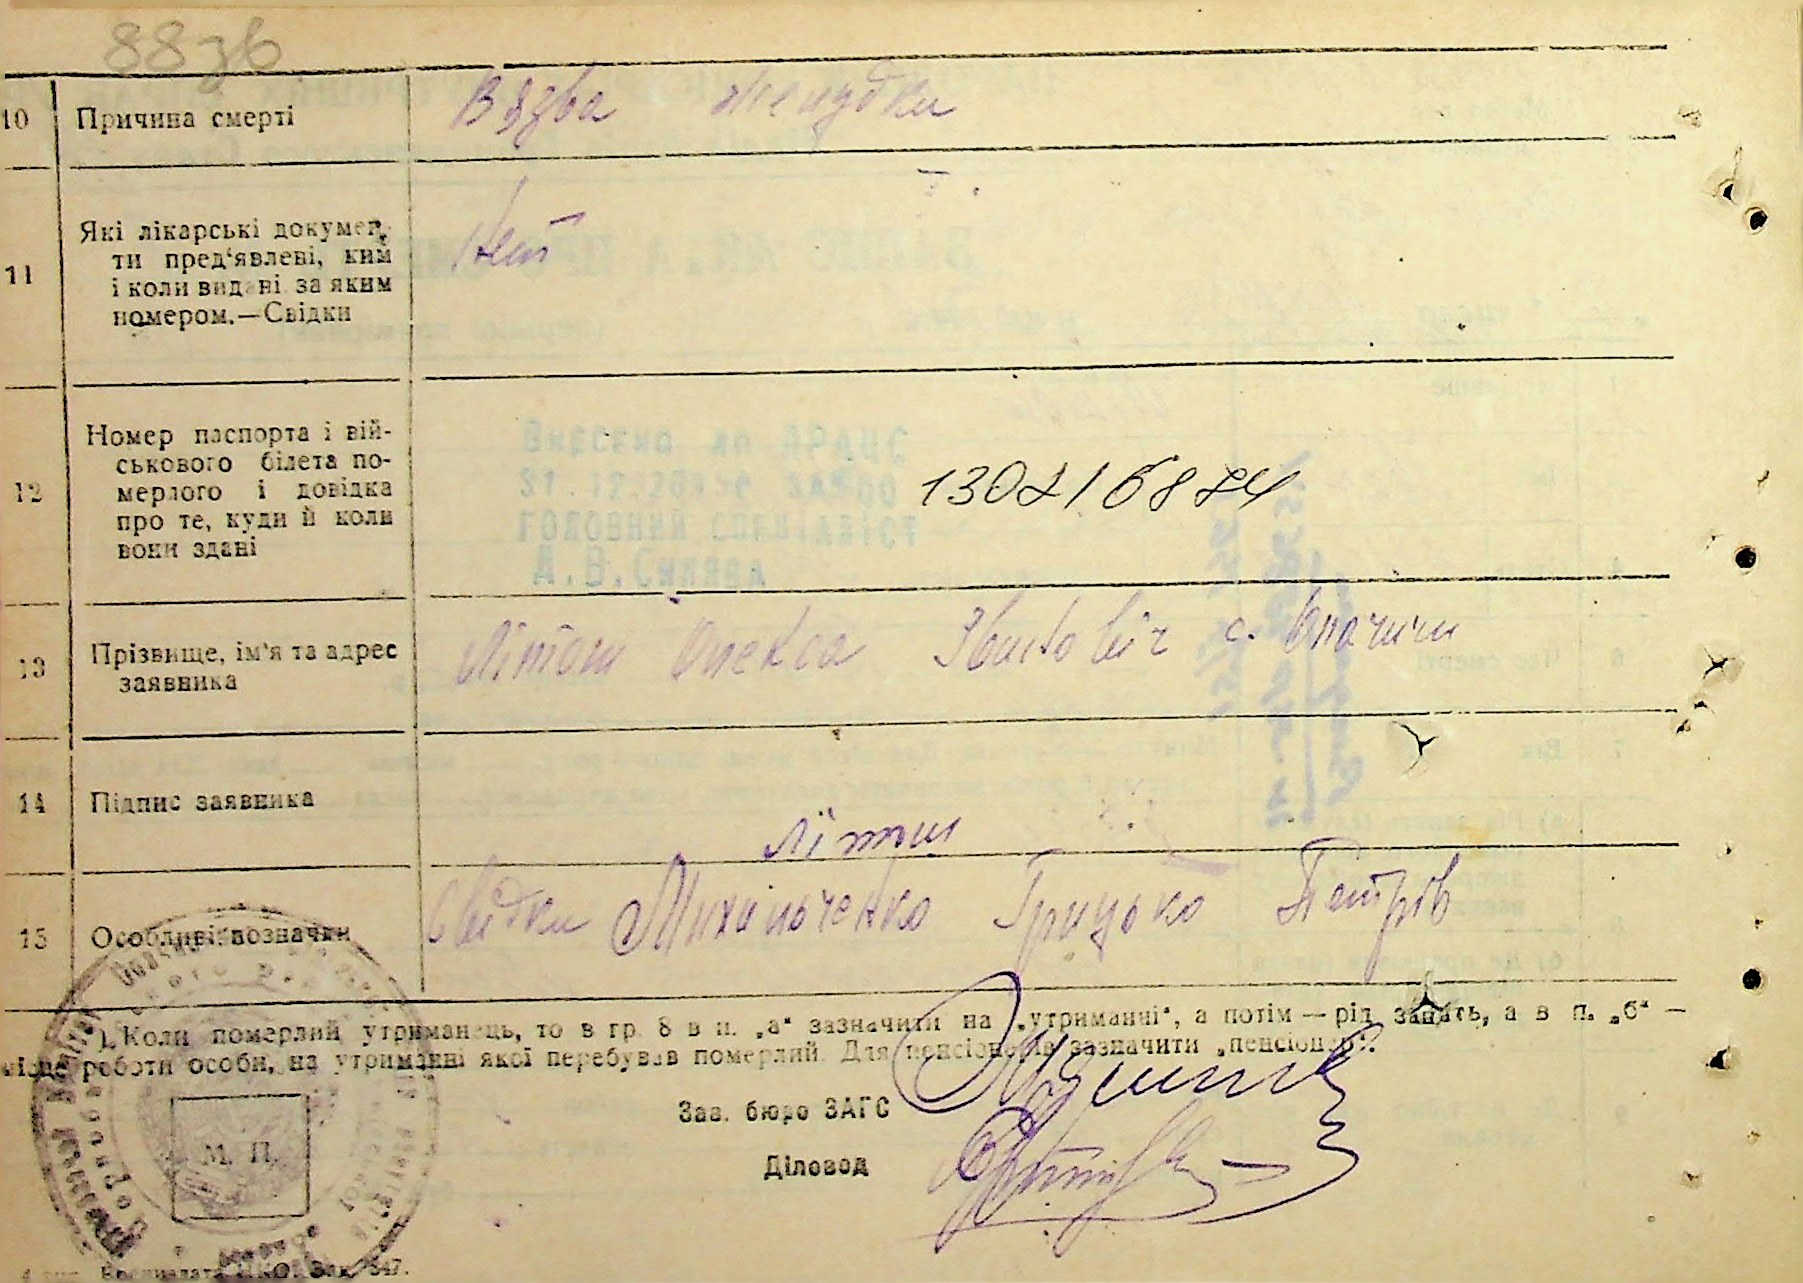 88зв
10 Причина смерті Вязва желудка
11 Які лікарські докумен-
ти пред'явлені, ким
і коли видані за яким
номером.—Свідки
Нет
12 Номер паспорта і вій-
ськового білета по-
мерлого і довідка
про те, куди й коли
вони здані
Внесено до ДРАЦС
ГОЛОВНИЙ СПЕЦІАЛІСТ
13 Прізвище, ім'я та адрес
заявника
Літош Олекса с. Опачичи
14 Підпис заявника
Літош
15 Особливі возначки
свідки Михальченко Грицько Петрів
). Коли померлий утриманець, то в гр. 8 в п. „а“ зазначити на „утриманні“, а потім — рід занять, а в п. „б“ —
місце роботи особи, на утриманні якої перебував померлий. Для пенсіонерів зазначити „пенсіонер“.
Зав. бюро ЗАГС
Діловод
М. П.
Зак. 347.